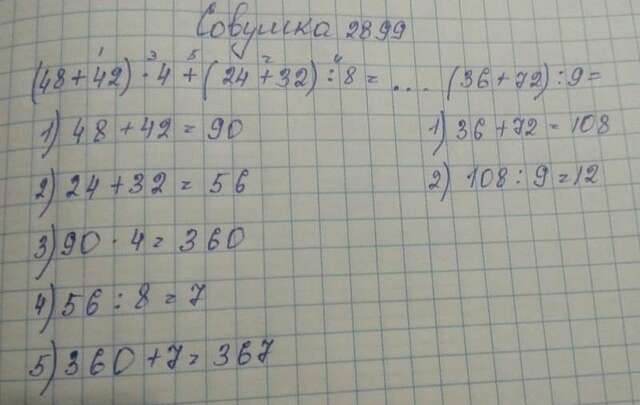 Совушка 2899
1 3 5 2 4
(48+42)·4+(24+32):8=... (36+72):9=
1) 48+42=90
1) 36+72=108
2) 24+32=56
2) 108:9=12
3) 90·4=360
4) 56:8=7
5) 360+7=367